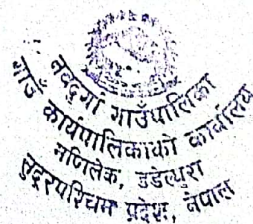 नवदुर्गा गाउँपालिका
गाउँ कार्यपालिकाको कार्यालय
मणिलेक, डडेल्धुरा
सुदूरपश्चिम प्रदेश, नेपाल